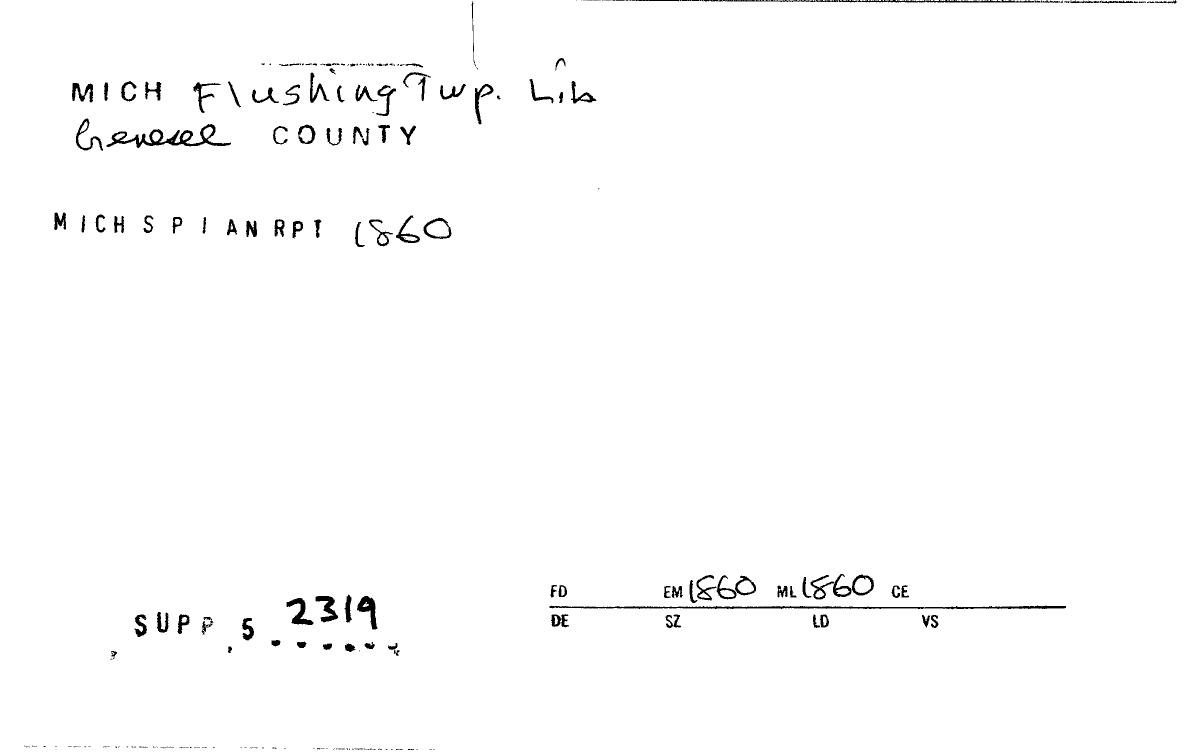 MICH Flushing Twp. Lib
Genesee COUNTY
MICH S P I AN RPT 1860
SUPP 5 2319
FD EM 1860 ML 1860 CE
DE SZ LD VS